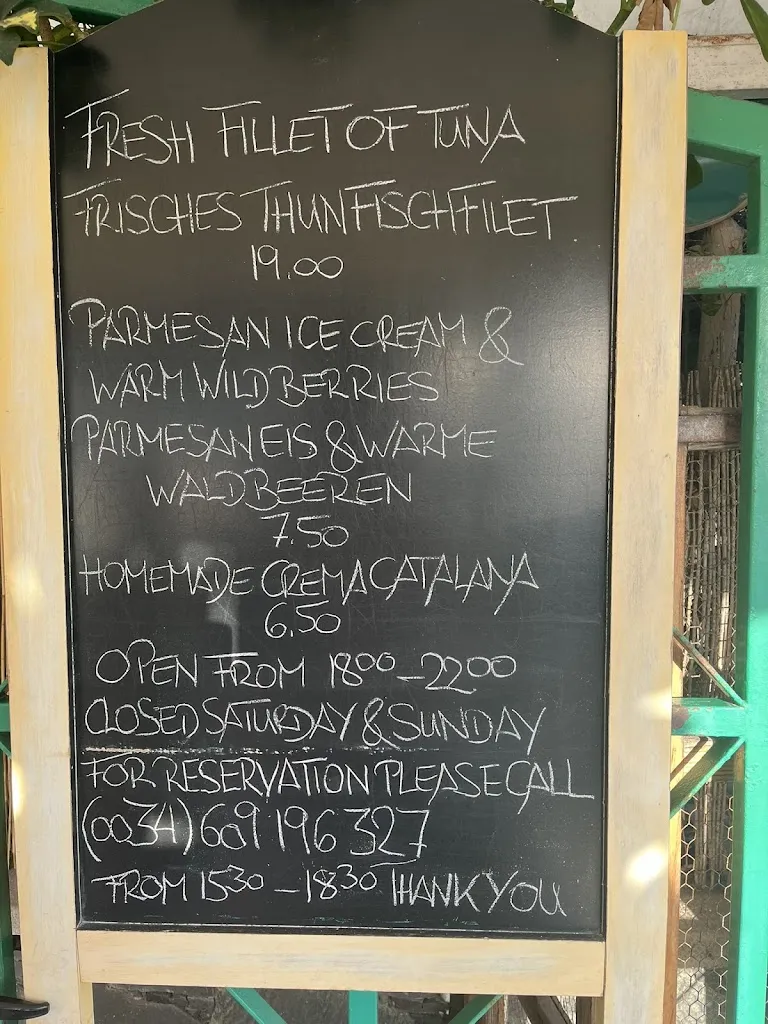 FRESH FILLET OF TUNA
FRISCHES THUNFISCHFILET
19.00
PARMESAN ICE CREAM &
WARM WILD BERRIES
PARMESANEIS & WARME
WALDBEEREN
7.50
HOMEMADE CREMA CATALANA
6.50
OPEN FROM 1800-2200
CLOSED SATURDAY & SUNDAY
FOR RESERVATION PLEASE CALL
(0034) 609 196 327
FROM 1530-1830 THANK YOU